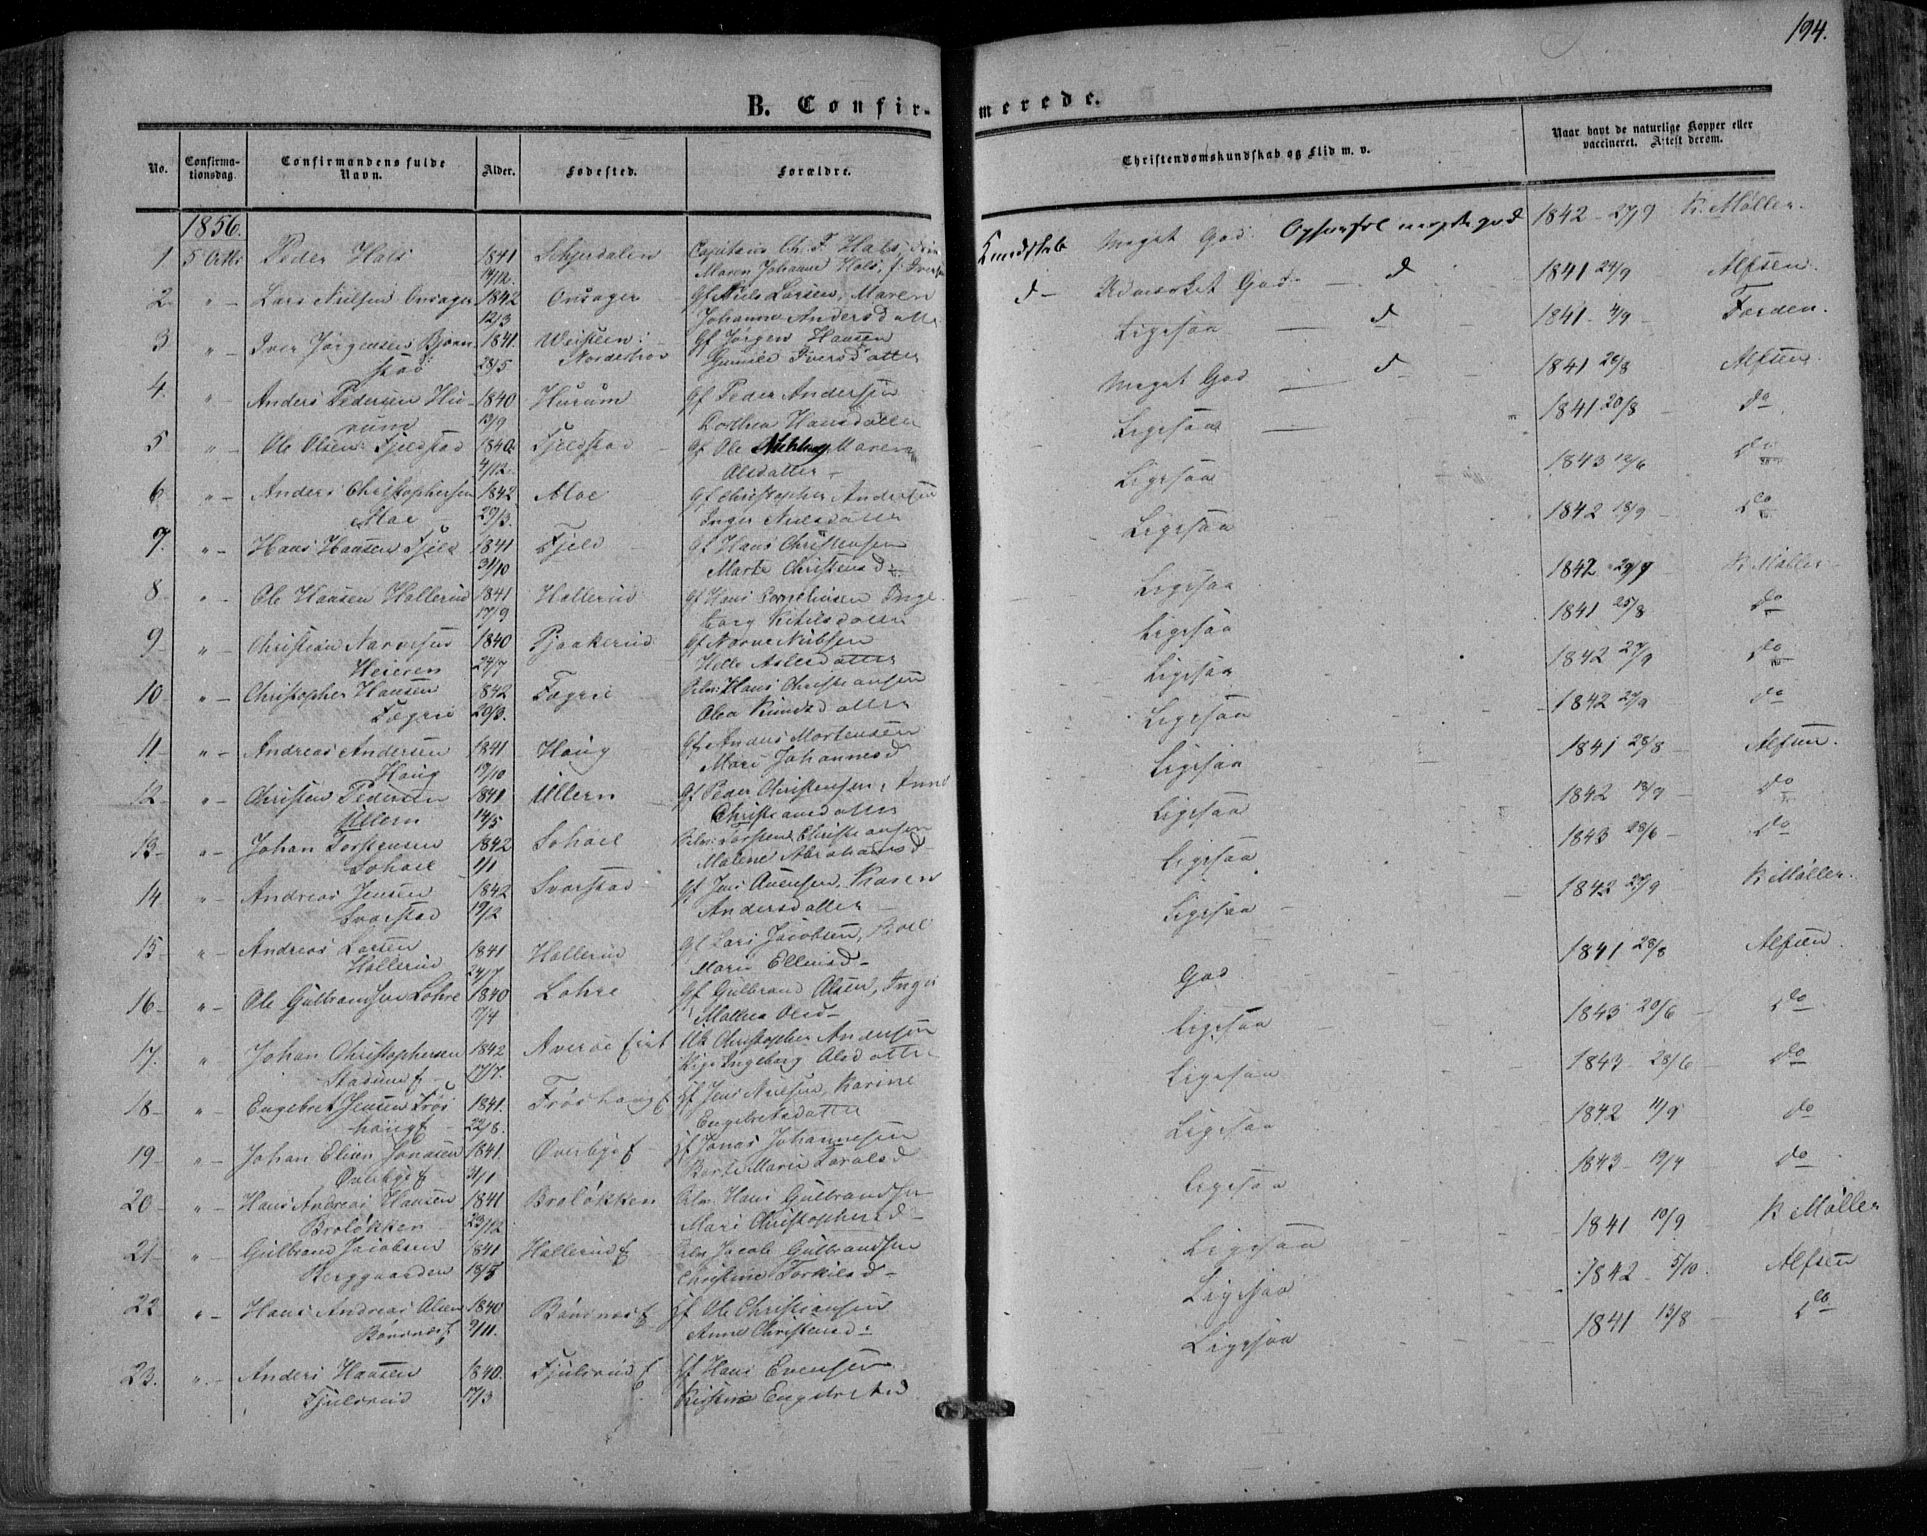 194.
B. Confir-
merede.
No.
Confirma-
tionsdag.
Confirmandens fulde
Navn.
Alder.
Fødested.
Forældre.
Christendomskundskab og Flid m. v.
Naar havt de naturlige Kopper eller
vaccineret. Attest derom.
1856.
1 5 Octbr Peder Hals 1841 Capitain Ch. F. Hals,
14/12. Maren Johanne Hals, f.
Kundskab Meget God. Opførsel meget god 1842 - 27/9 K. Møller.
2 " - Lars Nielsen Onsager 1842 Onsager gf Niels Larsen, Maren
12/3 Johanne Andersdatter
d - Udmærket God - d 1841 24/9 Alfsen.
3 " - Iver Jørgensen Bjørn 1841. Weisten: gf Jørgen Hansen
stad 28/5 Norderhov Gunild Iversdatter
Ligesaa - d 1841 - 4/9 - Forden.
4. " - Anders Pedersen Hu- 1840 Hurum gf Peder Andersen
rum 13/9 Dorthea Hansdatter
Meget God - d - 1841 28/8 Alfsen
5 " - Ole Olsen Fjeldstad 1840. Fjeldstad gf Ole Maren
4/12. Olsdatter -
Ligesaa 1841 20/8 - do
6 " - Anders Christophersen 1842 Moe gf Christopher Andersen
Moe 29/3. Inger Nielsdatter
Ligesaa 1843 12/6 do
7. " - Hans Hansen Fjeld 1841 Fjeld gf Hans Christensen
31/10 Marte Christensd -
Ligesaa 1842 18/9 - do
8 " - Ole Hansen Hallerud 1841 Hallerud gf Hans Inge
17/9 borg Ketilsdatter
Ligesaa 1842 29/9 K Møller -
9 " - Christian Narvesen 1840 gf Narve Nilsen
Heieren 24/7 Helle Aslesdatter
Ligesaa 1841 25/8 do
10 " - Christopher Hansen 1842 Fægrie Hans Christiansen
Fægrie 20/3. Olea Knudsdatter
Ligesaa 1842 27/9 do
11 " - Andreas Andersen 1841 Haug gf Anders Mortensen
Haug 19/10 Mari Johannesd
Ligesaa 1842 27/9 do
12 - " - Christen Pedersen 1841 Ullern gf Peder Christensen, Anne
Ullern 14/5 Christiansdatter
Ligesaa 1841 28/8 - Alfsen.
13 - " - Johan Torstensen 1842 Sohoel Torsten Christiansen
Sohoel 1/1 Malene Abrahamsd -
Ligesaa 1842 18/9 do
14 " - Andreas Jensen 1842 Svarstad gf Jens Evensen, Karen
Svarstad 19/2 Andersdatter -
Ligesaa 1843 28/6 - do
15 " - Andreas Larsen 1841 Hallerud gf Lars Jacobsen,
Hallerud 24/7 Marie Ellensd -
Ligesaa - 1842 29/9 K Møller.
16 - " - Ole Gulbrandsen Lohre 1840 Lohre gf Gulbrand Olsen,
7/4 Mathea Olsd -
God 1841 28/8 Alfsen
17. " Johan Christophersen 1842 Christopher Andersen
17/7. Ingeborg Olsdatter
Ligesaa 1843 20/6 - do
18 - " - Engebret Jensen Frøs 1841. Frøshaug gf Jens Nielsen, Karine
haug 22/8. Engebretsdatter
Ligesaa 1843 - 28/6 - do
19 - " - Johan Elisen Jonasen 1841. Overby gf Jonas Johannesen
31/1 Berte Marie
Ligesaa 1842 11/9 do
20 - " - Hans Andreas Hansen 1841 Broløkken Hans Gulbrandsen
Broløkken - 23/12 Mari Christophersd -
Ligesaa 1843 - 19/4 - do
21 - " - Gulbrand Jacobsen 1841 Hallerud Jacob Gulbrandsen
Berggaarden 18/5 Christine Torkilsd -
Ligesaa 1841 10/9 - K Møller
22 " - Hans Andreas Olsen 1840 Bønsnes gf Ole Christiansen
Bønsnes 9/11. Anne Christensd:
Ligesaa 1842 - 5/10. Alfsen
23. " - Anders Hansen 1840. Fjulsrud gf Hans Evensen
Fjulsrud 17/3 Kristine Engebretsd
Ligesaa 1841 13/8 do